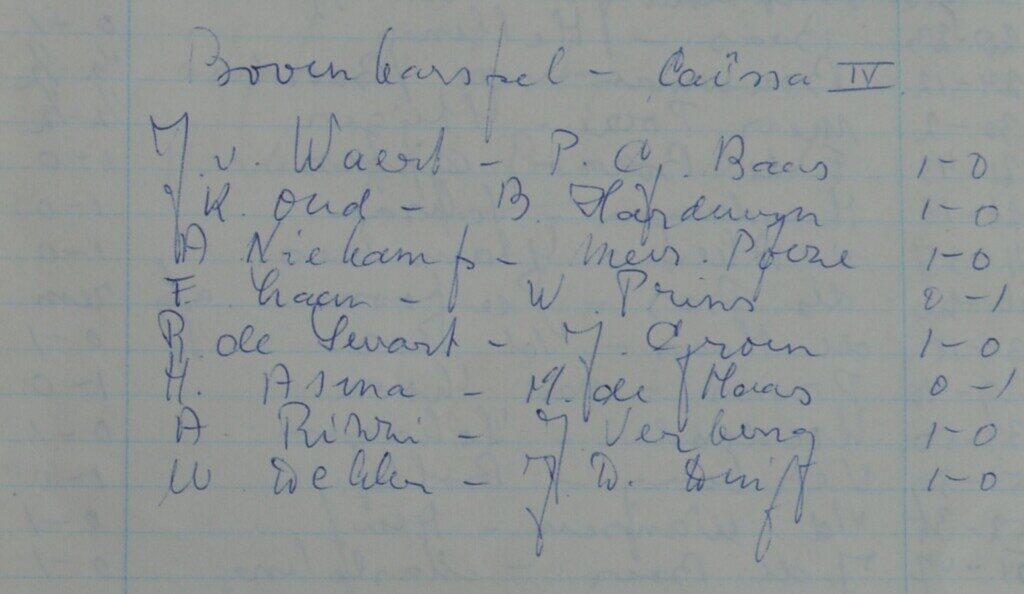 Bovenkarspel - Caïssa IV
J. v. Waert - P. C. Baas 1-0
K. Oud - B. Harduwyn 1-0
A Niekamp - Mevr. Poeze 1-0
F. Laan - W. Prins 0-1
R. de Swart - J. Groen 1-0
H. Asma - M. de Haas 0-1
A. - J Verburg 1-0
W Dekker - J. D. Duif 1-0